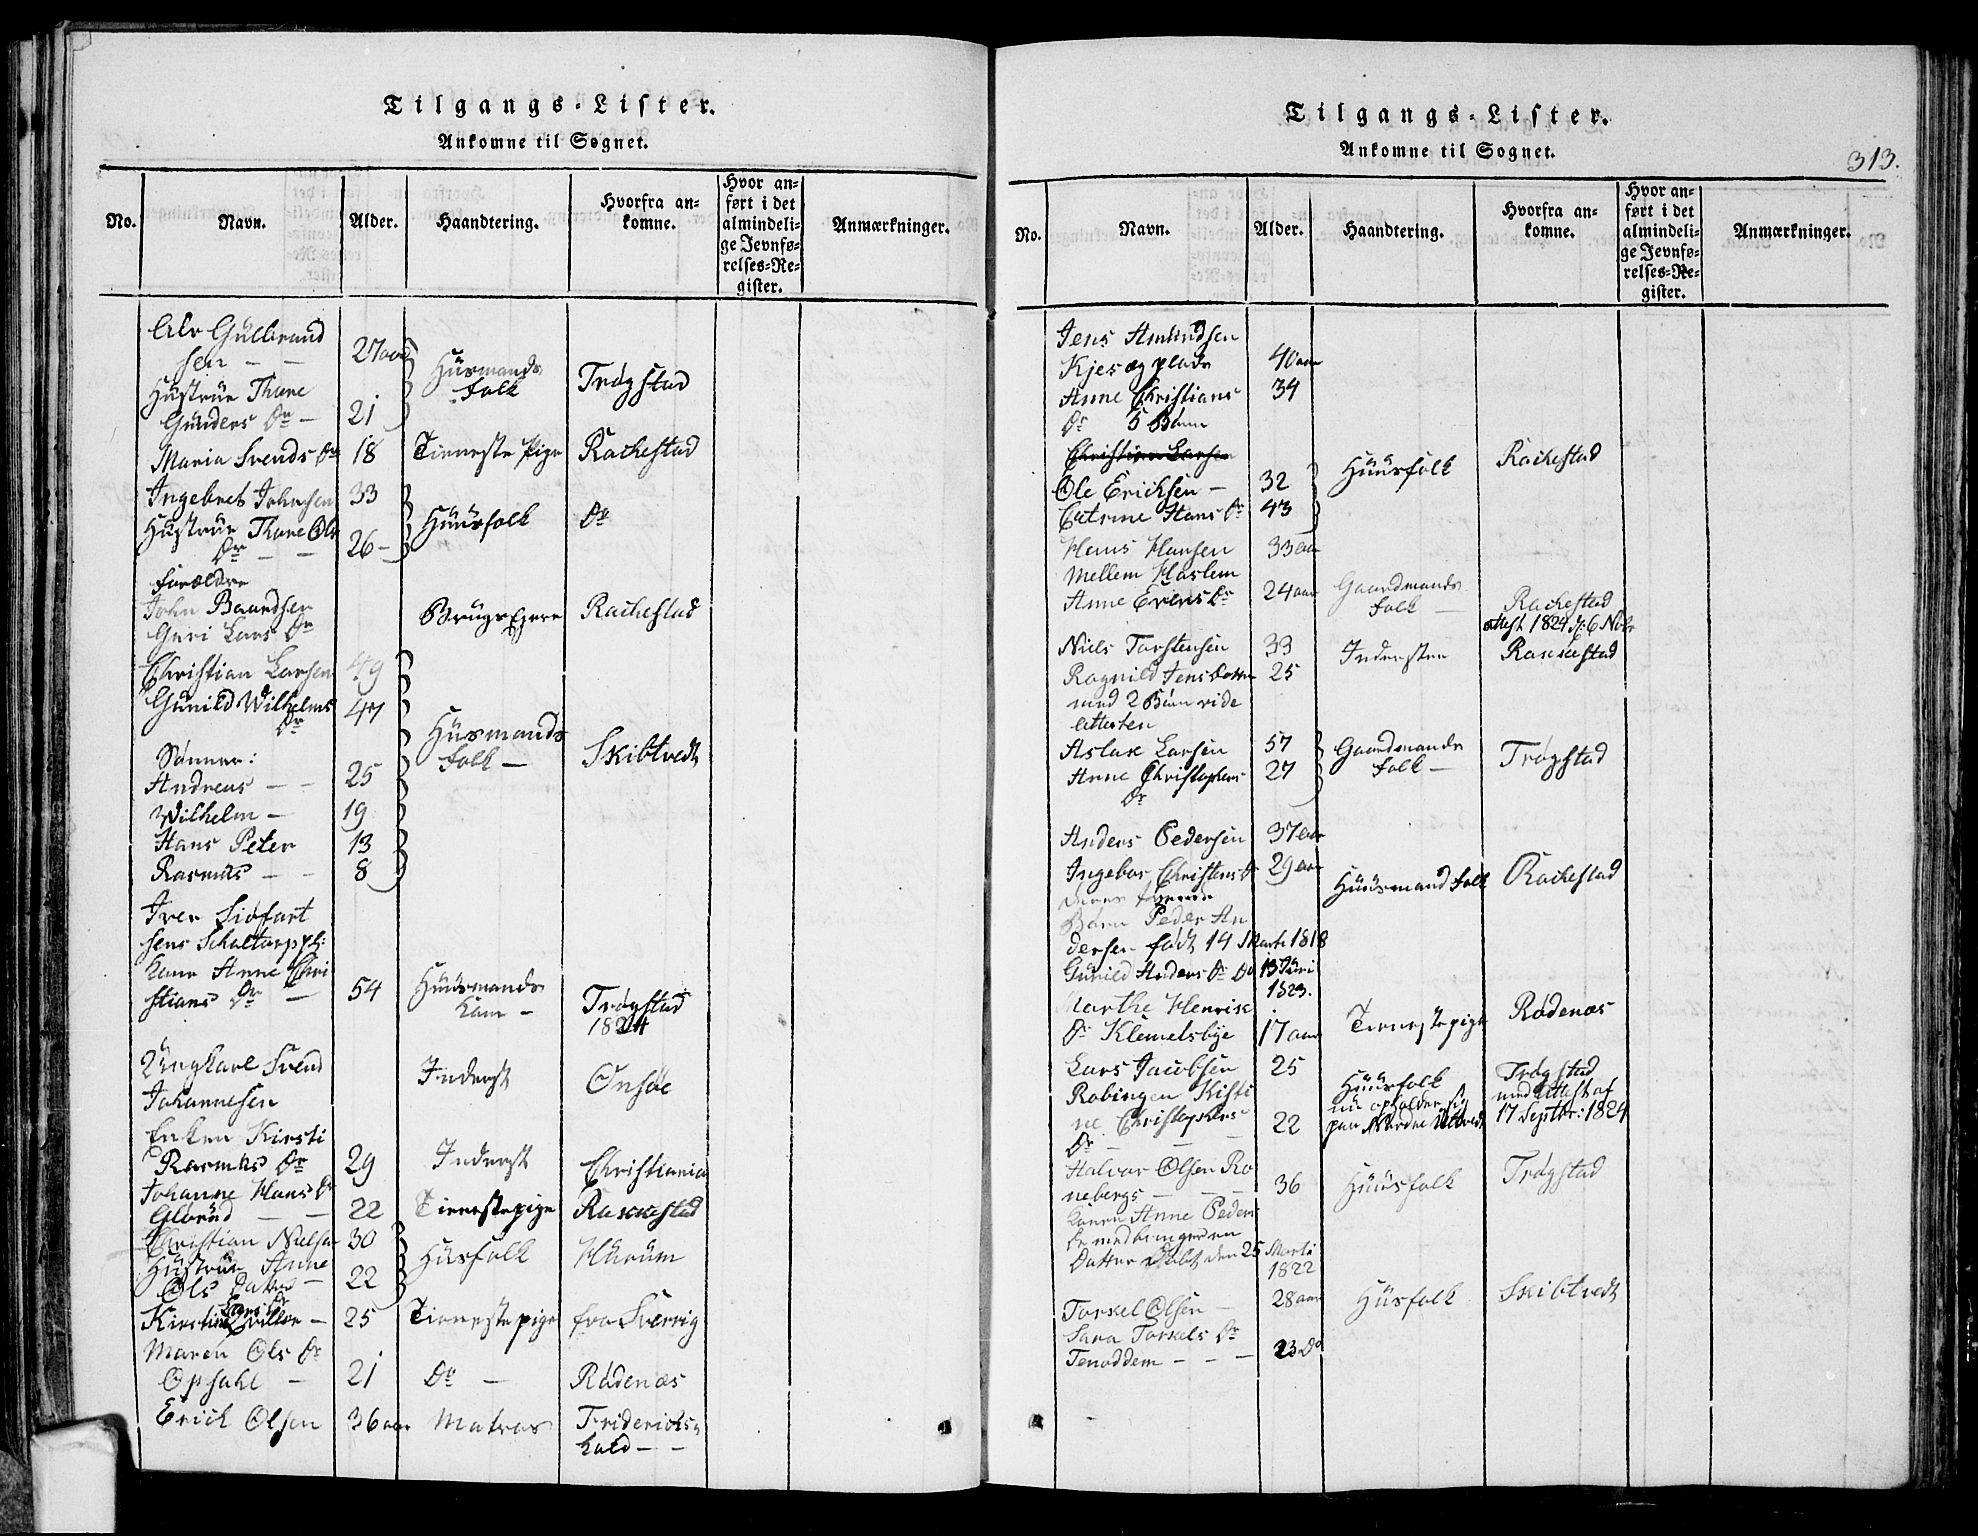 Tilgangs-Lister.
Ankomne til Sognet.
No.
Navn.
Alder.
Haandtering.
Hvorfra an-
komne.
Hvor an-
ført i det
almindeli-
ge Jevnfø-
relses-Re-
gister.
Anmærkninger.
Gulbrand
sen — — 27 aar
Hüsmands
folk Trøgstad
Hüstrüe Thore
Günders Dr — 21
Maria Svends Dr 18 Tieneste Pige Rachestad
Ingebret Johnsen 33
Hüstrüe Thore Ols
Dr — — 26 — Hüüsfolk Do
Forældre
John Baardsen
Guri Lars Dr Brügs Ejere Rachestad
Christian Larsen 49
Gunild Wilhelms
Dr 47
Hüsmands
folk — Skibtvedt
Sønner:
Andreas — — 25
Wilhelm — 19
Hans Peter 13
Rasmus — — 8
Iver Siofart
sens
Kone Anne Chri
stians Dr — 54 Hüüsmands
Kone — Trøgstad
1824
Ungkarl Svend
Johannesen Inderst Onsøe
Enken Kirsti
Rasmus Dr 29 Inderst Christiania
Johanne Hans Dr
— — 22 Tienestepige Rakkestad
Christian Nielsen 30
Hüstrüe Anne
Ols Datter — 22 Hüsfolk Hurum
Lars Dr
Kirstine — 25 Tienestepige fra Sverrig
Maren Ols Dr
Opsahl — 21 Do — Rødenæs
Erick Olsen 36 aar Matros Friderichs-
hald — —
Tilgangs-Lister.
Ankomne til Sognet.
313.
No.
Navn.
Alder.
Haandtering.
Hvorfra an-
komne.
Hvor an-
ført i det
almindeli-
ge Jevnfø-
relses-Re-
gister.
Anmærkninger.
Jens Amundsen
Kjesæg plads 40 aar
Anne Christians 34
Dr 5 Børn
Christian Larsen
Ole Ericksen — 32 Hüüsfolk Rachestad
Catrine Hans Dr 43
Hans Hansen 33 aar
Mellem Haslem
Anne Evens Dr 24 aar Gaardmands
folk — Rachestad
Attest 1824 d: 6 Nobr
Niels Torstensen 33 Inderster Rakkestad
Ragnild Jens Datter 25
med 2 Børn vide
Attesten
Aslak Larsen 57 Gaardmands
folk — Trøgstad
Anne Christophers 27
Dr
Anders Pedersen 37 aar
Ingebor Christens Dr 29 aar Hüüsmand folk Rachestad
deres tvende
Børn Peder An
dersen født 14 Marti 1818
Gunild Anders Dr Do 13 Juni
1823.
Marthe Henrik
Dr Klemetsbye 17 aar Tienestepige Rødenæs
Lars Jacobsen 25
Hüüsfolk
nu opholder sig
paa Trøgstad
med Attest af
17 Septbr: 1824
Robingen Kisti
ne Christophers 22
Dr — — —
Halvor Olsen Ro
nebergs — — — 36 Hüüsfolk Trøgstad
Konen Anne Peders
Dr medbringer en
Datter Døbt den 25 Marti
1822
Torkel Olsen — 28 aar Hüsfolk Skibtvedt
Sara Torkels Dr
Tenoddem — — — 23 Do